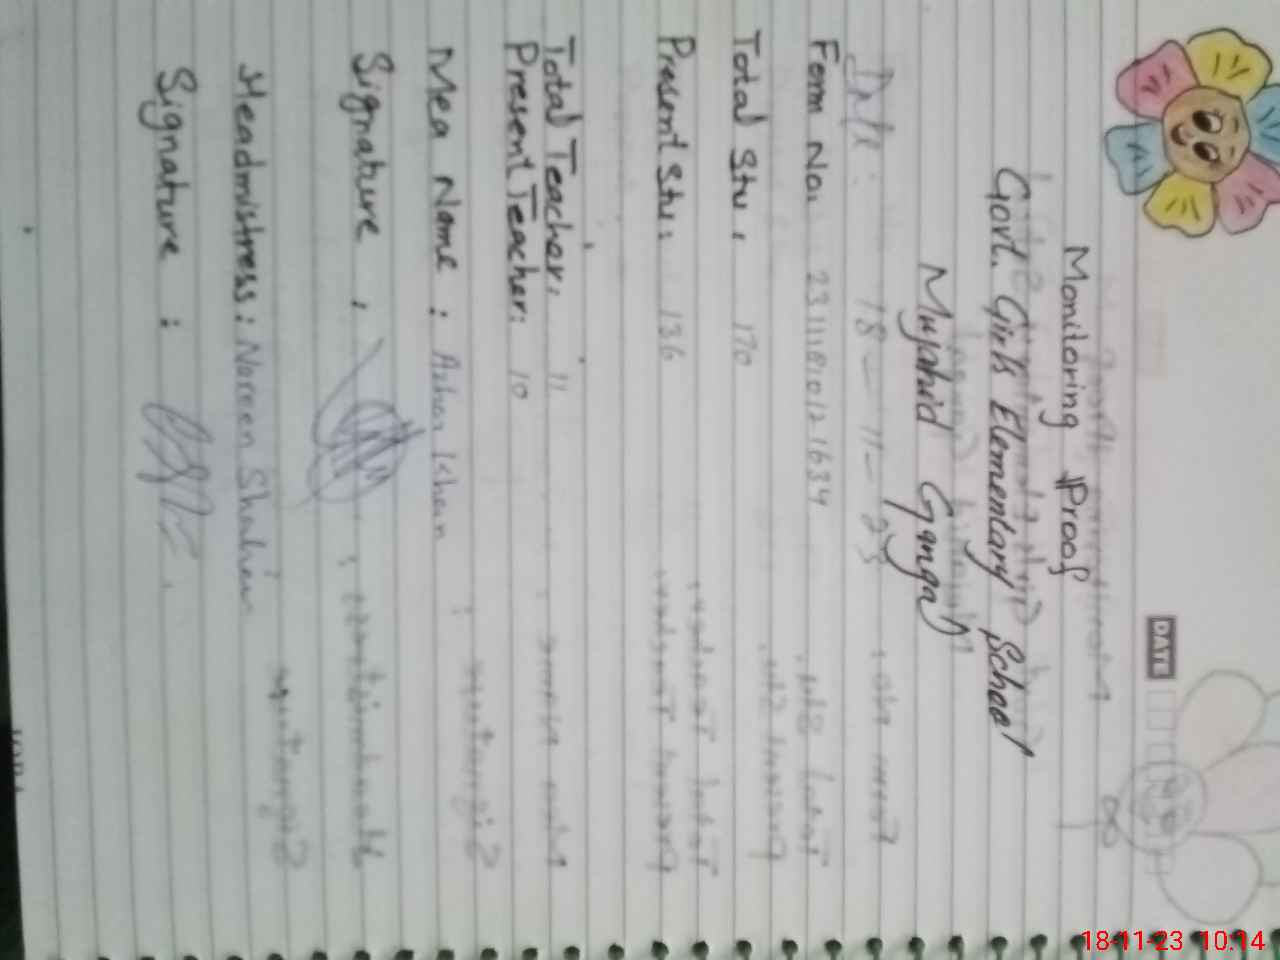 DATE
Monitoring Proof
Govt. Girls Elementary School
Mujahid Ganga
Date: 18-11-23
Form No. 231118101121634
Total Stu. 170
Present Stu. 136
Total Teacher: 11
Present Teacher: 10
Mea Name : Azhar Khan
Signature :
Headmistress: Noreen Shahin
Signature :
18-11-23 10:14